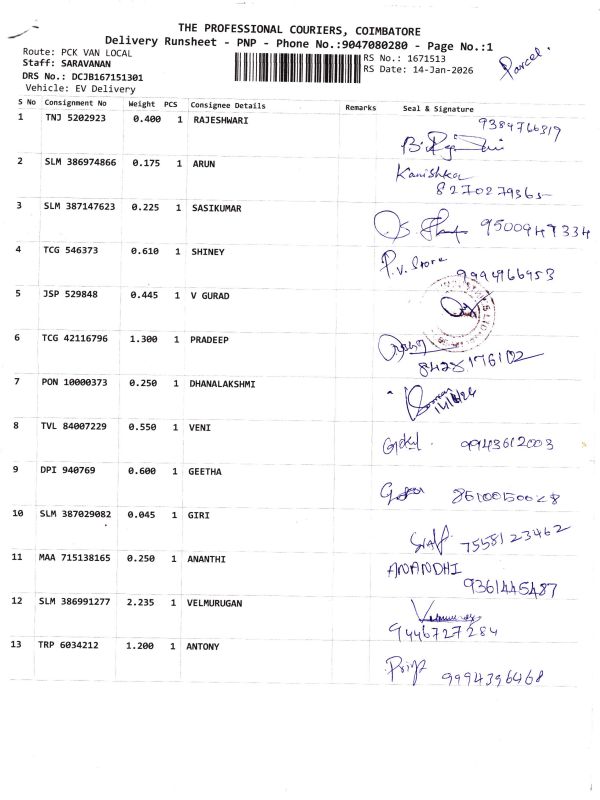 THE PROFESSIONAL COURIERS, COIMBATORE
Delivery Runsheet - PNP - Phone No.:9047080280 - Page No.:1
Parcel.
Route: PCK VAN LOCAL
RS No.: 1671513
Staff: SARAVANAN
RS Date: 14-Jan-2026
DRS No.: DCJB167151301
Vehicle: EV Delivery
S No Consignment No Weight PCS Consignee Details Remarks Seal & Signature
1 TNJ 5202923 0.400 1 RAJESHWARI 9384766319
2 SLM 386974866 0.175 1 ARUN Kanishka
8270279365
3 SLM 387147623 0.225 1 SASIKUMAR 9500947334
4 TCG 546373 0.610 1 SHINEY P.V. Store
9994966953
5 JSP 529848 0.445 1 V GURAD
6 TCG 42116796 1.300 1 PRADEEP
8428176102
7 PON 10000373 0.250 1 DHANALAKSHMI
8 TVL 84007229 0.550 1 VENI Gokul. 9943612003
9 DPI 940769 0.600 1 GEETHA 8610050028
10 SLM 387029082 0.045 1 GIRI Staff 7558123462
11 MAA 715138165 0.250 1 ANANTHI ANANDHI
9361445487
12 SLM 386991277 2.235 1 VELMURUGAN
9446727284
13 TRP 6034212 1.200 1 ANTONY Priya 9994396468